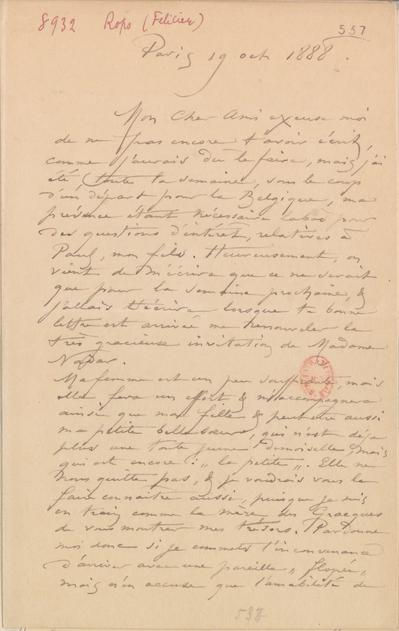 8932 Rops (Félicien)
557
Paris 19 oct 1888.
Mon Cher Ami excuse moi
de ne pas encore t'avoir écrit,
comme j'aurais dû le faire, mais j'ai
été toute la semaine, sous le coup
d'un départ pour la Belgique, ma
présence étant nécessaire là bas pour
des questions d'intérêt, relatives à
Paul, mon fils. Heureusement, on
vient de m'écrire que ce ne serait
que pour la semaine prochaine, &
j'allais t'écrire lorsque ta bonne
lettre est arrivée me renouveler la
très gracieuse invitation de Madame
Nadar.
Ma femme est un peu souffrante, mais
elle fera un effort & m'accompagnera
ainsi que ma fille & peut être aussi
ma petite belle sœur, qui n'est déjà
plus une toute jeune demoiselle, mais
qui est encore: „ la petite „. Elle ne
nous quitte pas, & je voudrais vous la
faire connaître aussi, puisque je suis
en train comme la mère des Gracques
de vous montrer mes trésors. Pardonne
moi donc si je commets l'inconvenance
d'arriver avec une pareille „ flopée„
mais n'en accuse que l'amabilité de
557